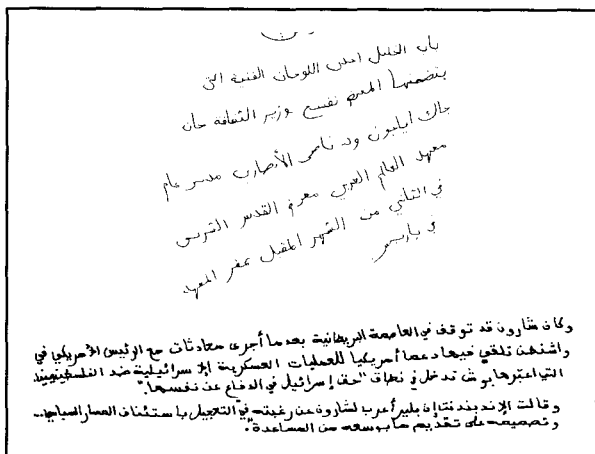 باب الخليل احدى اللوحات الفنية التي
يتضمنها المعرض يفتتح وزير الثقافة
جاك ناصر الأنصاري مدير عام
معهد العالم العربي معرض القدس الشريف
في الثاني من الشهر المقبل بمقر المعهد
في باريس
وكان شارون قد توقف في العاصمة البريطانية بعدما أجرى محادثات مع الرئيس الأمريكي في
واشنطن تلقي فيها دعما أمريكيا للعمليات العسكرية الإسرائيلية ضد الفلسطينيين
التي اعتبرها بوش تدخل في نطاق "حق إسرائيل في الدفاع عن نفسها".
وقالت الإندبندنت إن بلير أعرب لشارون عن رغبته في التعجيل باستئناف المسار السياسي..
وتصميمه على تقديم ما بوسعه من المساعدة".